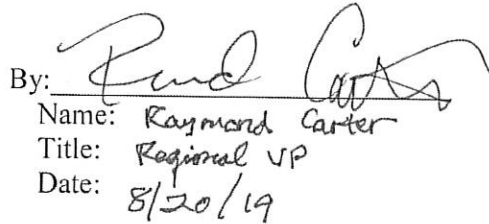 By:
Name: Raymond Carter
Title: Regional VP
Date: 8/20/19